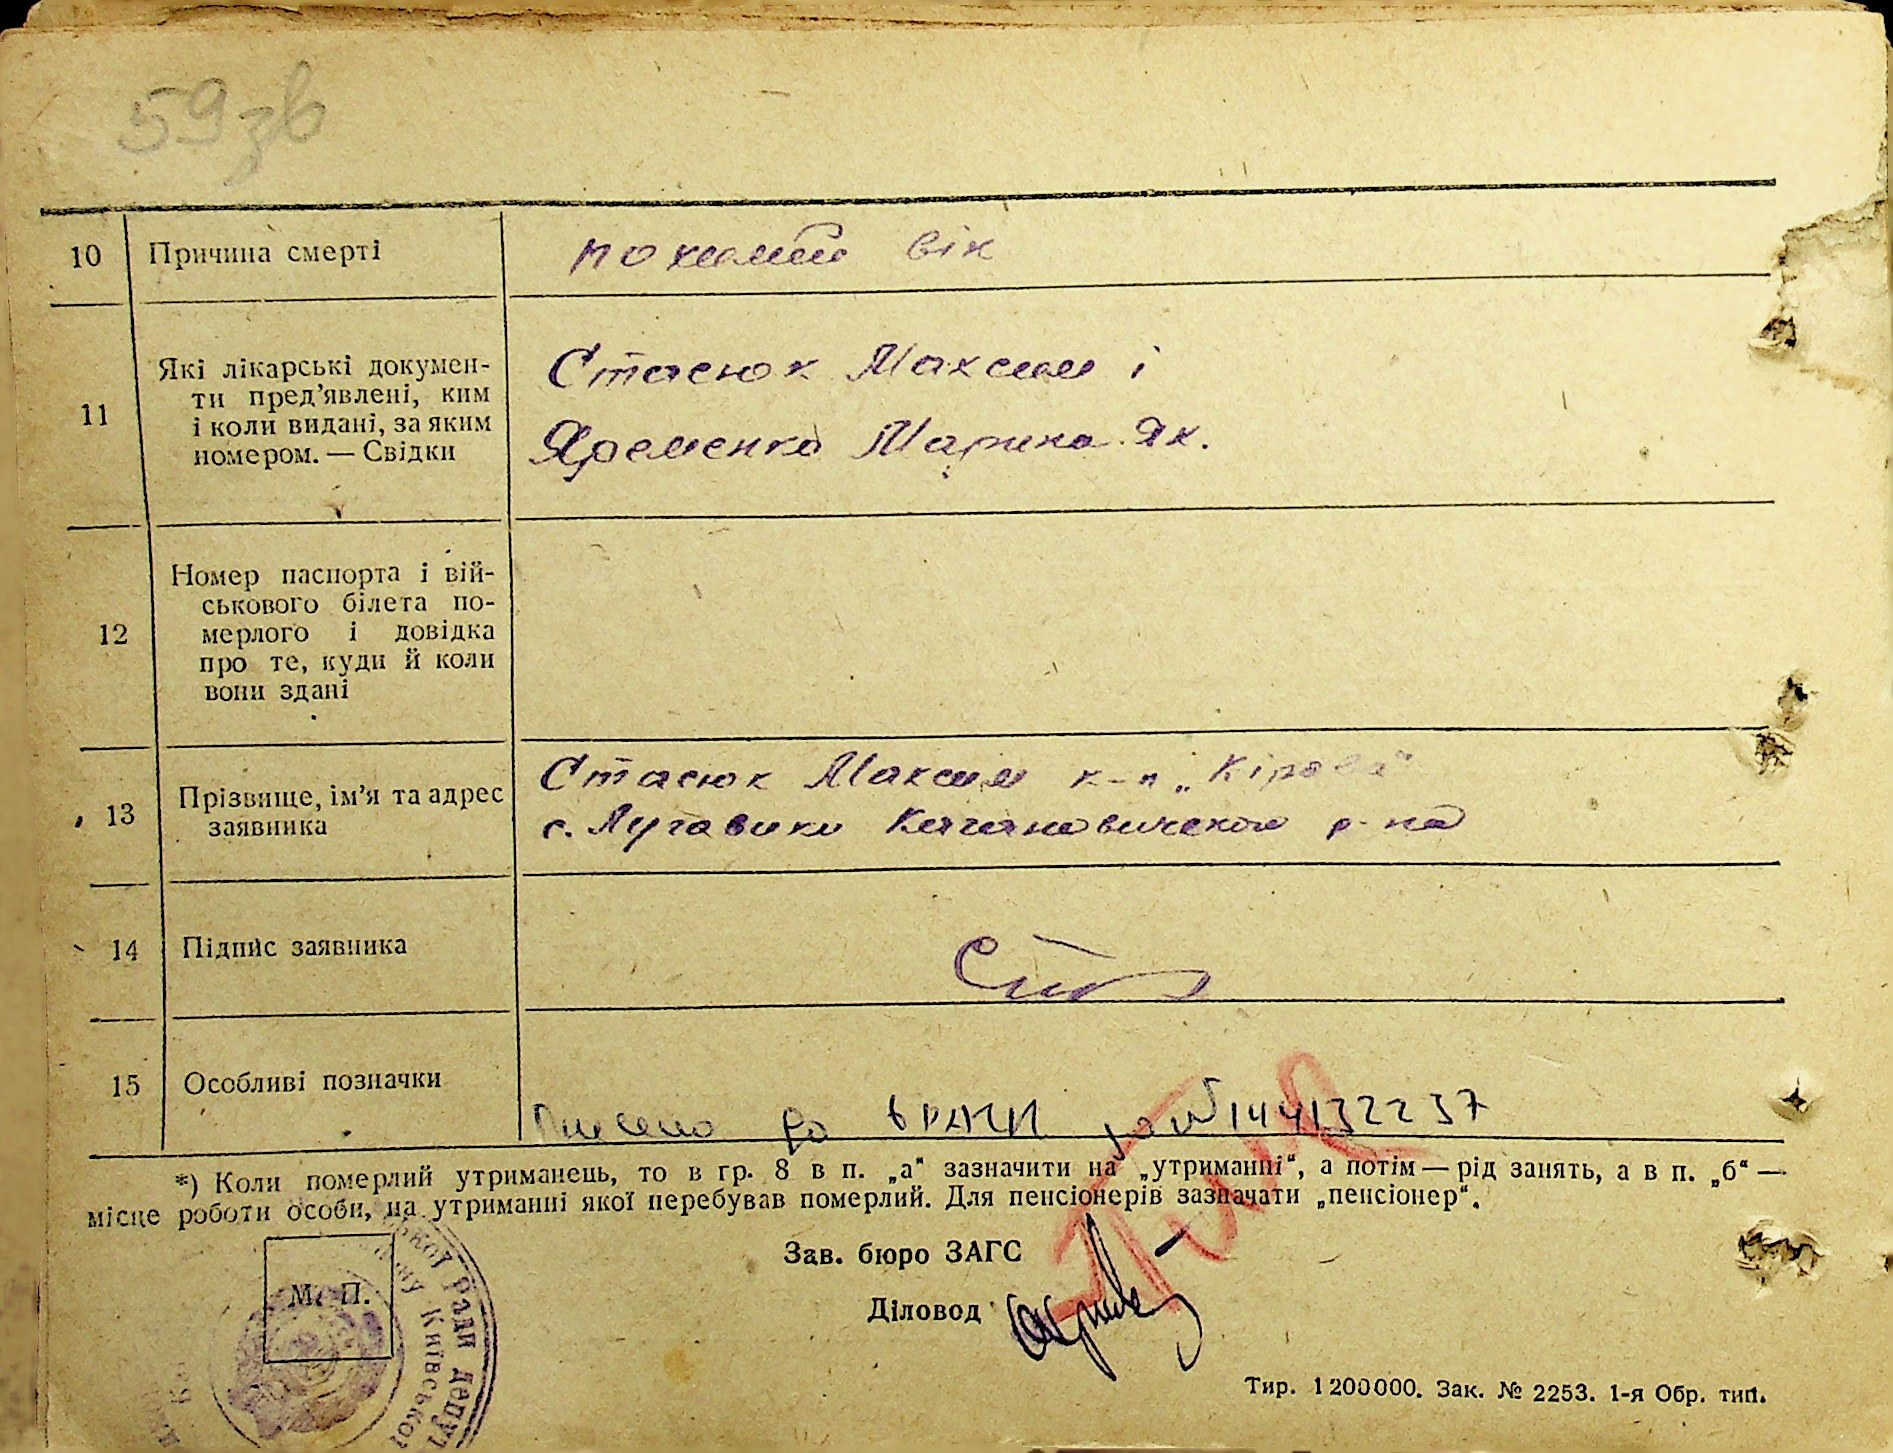 59зв
10 Причина смерті похилий вік
11 Які лікарські докумен-
ти пред'явлені, ким
і коли видані, за яким
номером. — Свідки
Стасюк Максим і
Яременко Марина Як.
12 Номер паспорта і вій-
ськового білета по-
мерлого і довідка
про те, куди й коли
вони здані
13 Прізвище, ім'я та адрес
заявника
Стасюк Максим к-п „Кірова"
с. Луговики Кагановичского р-на
14 Підпис заявника
15 Особливі позначки
Внесено до ДРАЦС за № 144132237
*) Коли померлий утриманець, то в гр. 8 в п. „а" зазначити на „утриманні", а потім — рід занять, а в п. „б" —
місце роботи особи, на утриманні якої перебував померлий. Для пенсіонерів зазначати „пенсіонер".
Зав. бюро ЗАГС
М. П.
Діловод
ської Ради депут
Київської
Тир. 1200000. Зак. № 2253. 1-я Обр. тип.